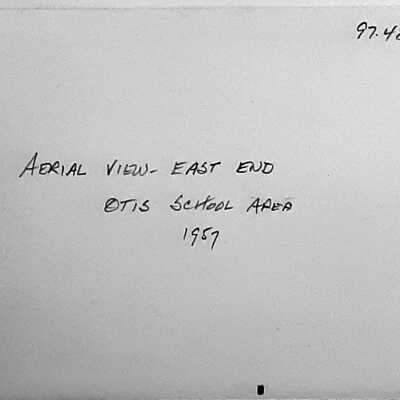 97.4
AERIAL VIEW- EAST END
OTIS SCHOOL AREA
1957